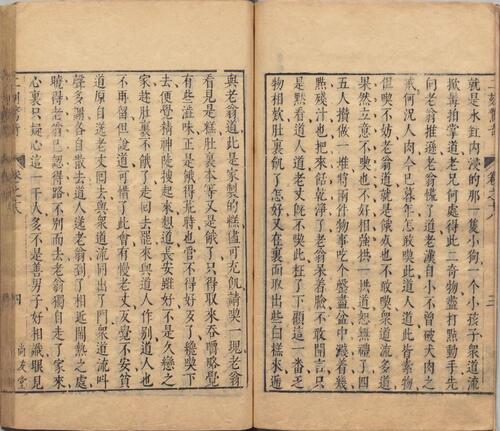 二刻驚奇 卷之十八 三
就是水缸內浸的那一隻小狗一個小孩子衆道流
掀髯拍掌道老兄何處得此二奇物盡打點動手先
向老翁推遜老翁慌了道老漢自小不曾嘗犬肉之
味何况人肉今已暮年怎敢喫此道人道此皆素物
但喫不妨老翁道就是餓死也不敢喫衆道流多道
果然立意不喫也不好相強拱一拱道恕無禮了四
五人攢做一堆將兩件物事吃個罄盡盆中濺着幾
點殘汁也把來餂乾淨了老翁呆着臉不敢開言只
是黙看道人道老丈旣不喫此枉了下顧這一番乏
物相欵肚裏飢了怎好又在裏面取出些白糕來遞
與老翁道此是家製的糕儘可充飢請喫一塊老翁
看見是糕肚裏本等又是餓了只得取來吞嚼略覺
有些澁味正是餓得荒時也管不得好歹了纔喫下
去便覺精神陡搜起來想道長安雖好不是久戀之
家趂肚裏不餓了走回去罷來與道人作別道人也
不再留但說道可惜了此會有慢老丈反覺不安貧
道原自送老丈回去與衆道流同出了門衆道流叫
聲多謝各自散去道人送老翁到了相近鬧熱之處
曉得老翁已認得路不別而去老翁獨自走了家來
心裏只疑心這一干人多不是善男子好相識眼見
二刻驚奇 卷之十八 四 尚友堂